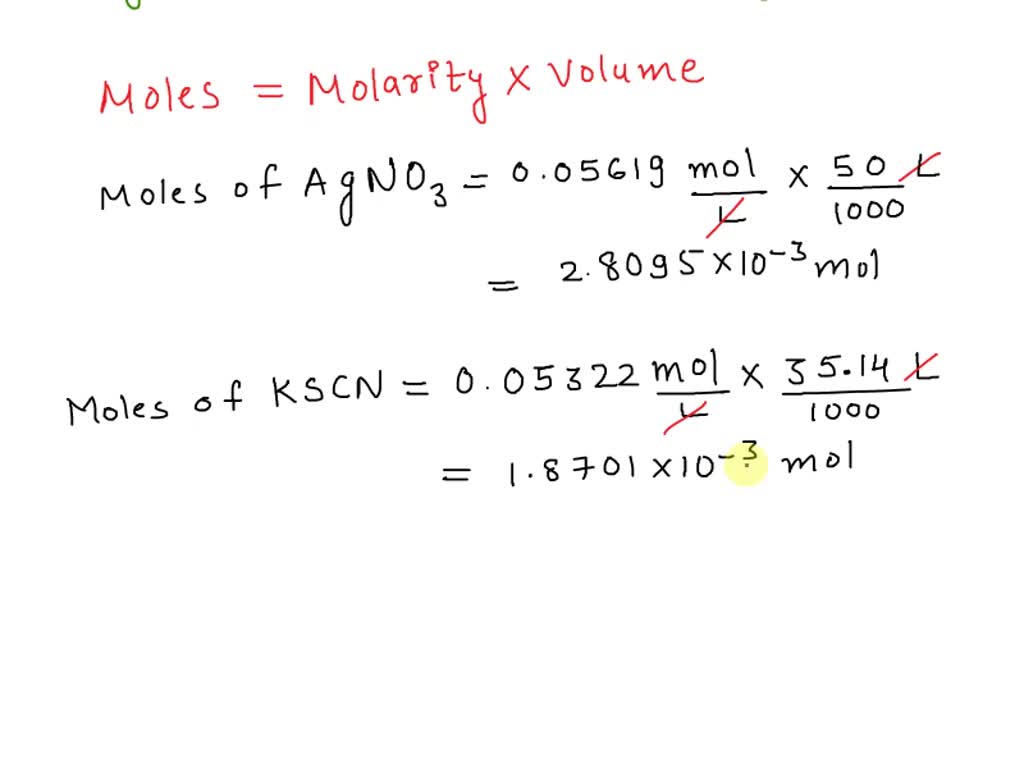 Moles = Molarity × Volume
Moles of AgNO₃ = 0.05619 mol/L × 50 L/1000
= 2.8095 × 10⁻³ mol
Moles of KSCN = 0.05322 mol/L × 35.14 L/1000
= 1.8701 × 10⁻³ mol